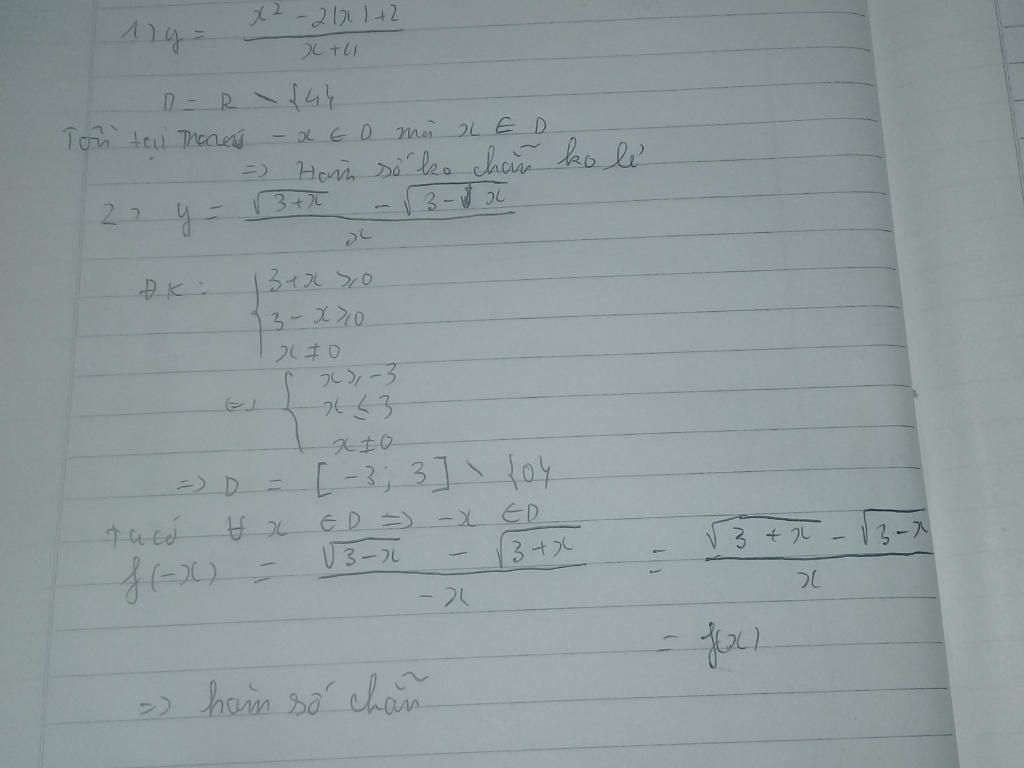 1) y = (x² - 2|x| + 2)/(x + 4)
D = R \ {4}
Tồn tại -x ∈ D mà x ∈ D
=> Hàm số ko chẵn ko lẻ
2) y = (√(3+x) - √(3-x))/x
ĐK: { 3+x ≥ 0
3 - x ≥ 0
x ≠ 0
<=> { x ≥ -3
x ≤ 3
x ≠ 0
=> D = [-3; 3] \ {0}
ta có ∀ x ∈ D => -x ∈ D
f(-x) = (√(3-x) - √(3+x))/(-x) = (√(3+x) - √(3-x))/x
= f(x)
=> hàm số chẵn